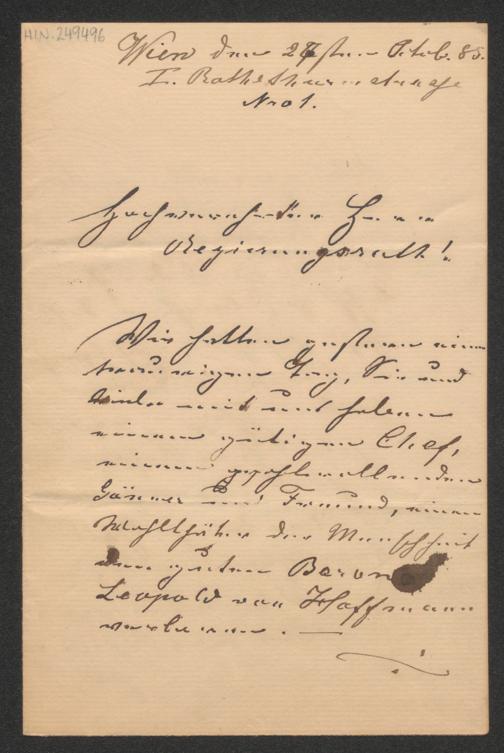 H.I.N. 249496
Wien den 26sten Octob. 85.
I. Rothethurmstrasse
Nro 1.
Hochverehrter Herr
Regierungsrath!
Wir hatten gestern einen
traurigen Tag, Sie und
viele mit uns haben
einen gütigen Chef,
einen wohlwollenden
Gönner und Freund, einen
Wohlthäter der Menschheit
den guten Baron
Leopold von Hoffmann
verloren. —